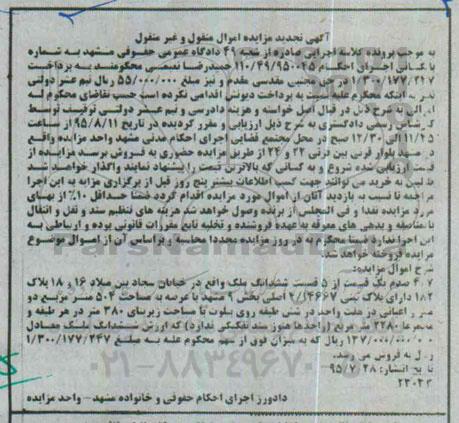 آگهی تجدید مزایده اموال منقول و غیر منقول
به موجب پرونده کلاسه اجرایی صادره از شعبه ۴۹ دادگاه عمومی حقوقی مشهد به شماره
بایگانی اجرای احکام ۱۱۰/۴۹/۹۵۰۰۴۵ حمیدرضا نعیمی محکومند به پرداخت
۱/۳۰۰/۱۷۷/۲۴۷ در حق مجتبی مقدسی مقدم و نیز مبلغ ۵۵/۰۰۰/۰۰۰ ریال نیم عشر دولتی
نظر به اینکه محکوم علیه نسبت به پرداخت دیونش اقدامی نکرده است حسب تقاضای محکوم له
اموالی به شرح ذیل در قبال اصل خواسته و هزینه دادرسی و نیم عشر دولتی توقیف توسط
کارشناس رسمی دادگستری به شرح ذیل ارزیابی و مقرر گردیده در تاریخ ۹۵/۸/۱۱ از ساعت
۱۱/۴۵ الی ۱۲/۳۰ صبح در محل مجتمع قضایی اجرای احکام مدنی مشهد واحد مزایده واقع
در مشهد بلوار قرنی بین قرنی ۲۲ و ۲۴ از طریق مزایده حضوری به فروش برسد مزایده از
قیمت ارزیابی شده شروع و به کسانی که بالاترین قیمت را پیشنهاد نمایند واگذار خواهد شد
طالبین به خرید می توانند جهت کسب اطلاعات بیشتر پنج روز قبل از برگزاری مزایده به این اجرا
مراجعه تا نسبت به بازدید آنان از اموال مورد مزایده اقدام گردد ضمنا حداقل ۱۰٪ از بهای
مورد مزایده نقدا و فی المجلس از برنده وصول خواهد شد هزینه های تنظیم سند و نقل و انتقال
با مفاصا و بدهی های معوقه به عهده فروشنده و تخلیه تابع مقررات قانونی بوده و ارتباطی به
این اجرا ندارد ضمنا محکوم به در روز مزایده مجددا محاسبه و براساس آن از اموال موضوع
مزایده فروخته خواهد شد.
شرح اموال مزایده:
۴.۷ صدم یک قسمت از ۵ قسمت ششدانگ ملک واقع در خیابان سجاد بین میلاد ۱۶ و ۱۸ پلاک
۱۸۲ دارای پلاک ثبتی ۲/۱۴۶۶۷ اصلی بخش ۹ مشهد با عرصه به مساحت ۵۰۴ متر مربع دو
ممر و اعیانی در هفت واحد در شش طبقه روی پیلوت با مساحت زیربنای ۳۸۰ متر در هر طبقه و
مجموعا ۲۲۸۰ متر مربع (واحدها هنوز سند تفکیکی ندارد) که ارزش ششدانگ ملک معادل
۱۳۷/۰۰۰/۰۰۰/۰۰۰ ریال که به میزان فوق از سهم محکوم علیه به مبلغ ۱/۳۰۰/۱۷۷/۲۴۷
ریال به فروش می رسد.
تاریخ انتشار: ۹۵/۷/۲۸
۲۳۰۳۳
دادورز اجرای احکام حقوقی و خانواده مشهد - واحد مزایده
ParsNamadData
۰۲۱-۸۸۳۴۹۶۷۰